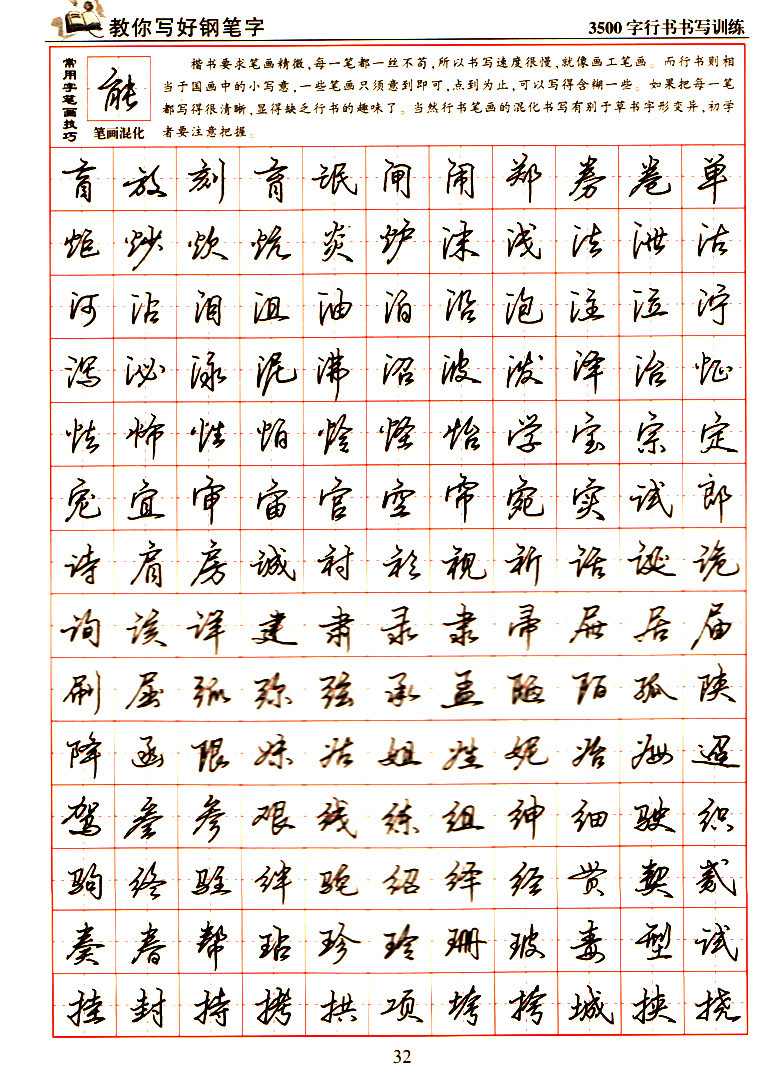 教你写好钢笔字
3500字行书书写训练
常用字笔画技巧
能
笔画混化
楷书要求笔画精微,每一笔都一丝不苟,所以书写速度很慢,就像画工笔画。而行书则相
当于国画中的小写意,一些笔画只须意到即可,点到为止,可以写得含糊一些。如果把每一笔
都写得很清晰,显得缺乏行书的趣味了。当然行书笔画的混化书写有别于草书字形变异,初学
者要注意把握。
盲放刻育氓闸闹郑券卷单
炬炒炊炕炎炉沫浅法泄沽
河沾泪沮油泊沿泡注泣泞
泻泌泳泥沸沼波泼泽治怔
怯怖性怕怜怪怡学宝宗定
宠宜审宙官空帘宛实试郎
诗肩房诚衬衫视祈话诞诡
询该详建肃录隶帚屉居届
刷屈弧弥弦承孟陋陌孤陕
降函限妹姑姐姓妮始姆迢
驾叁参艰线练组绅细驶织
驹终驻绊驼绍绎经贯契贰
奏春帮玷珍玲珊玻毒型拭
挂封持拷拱项垮挎城挟挠
32